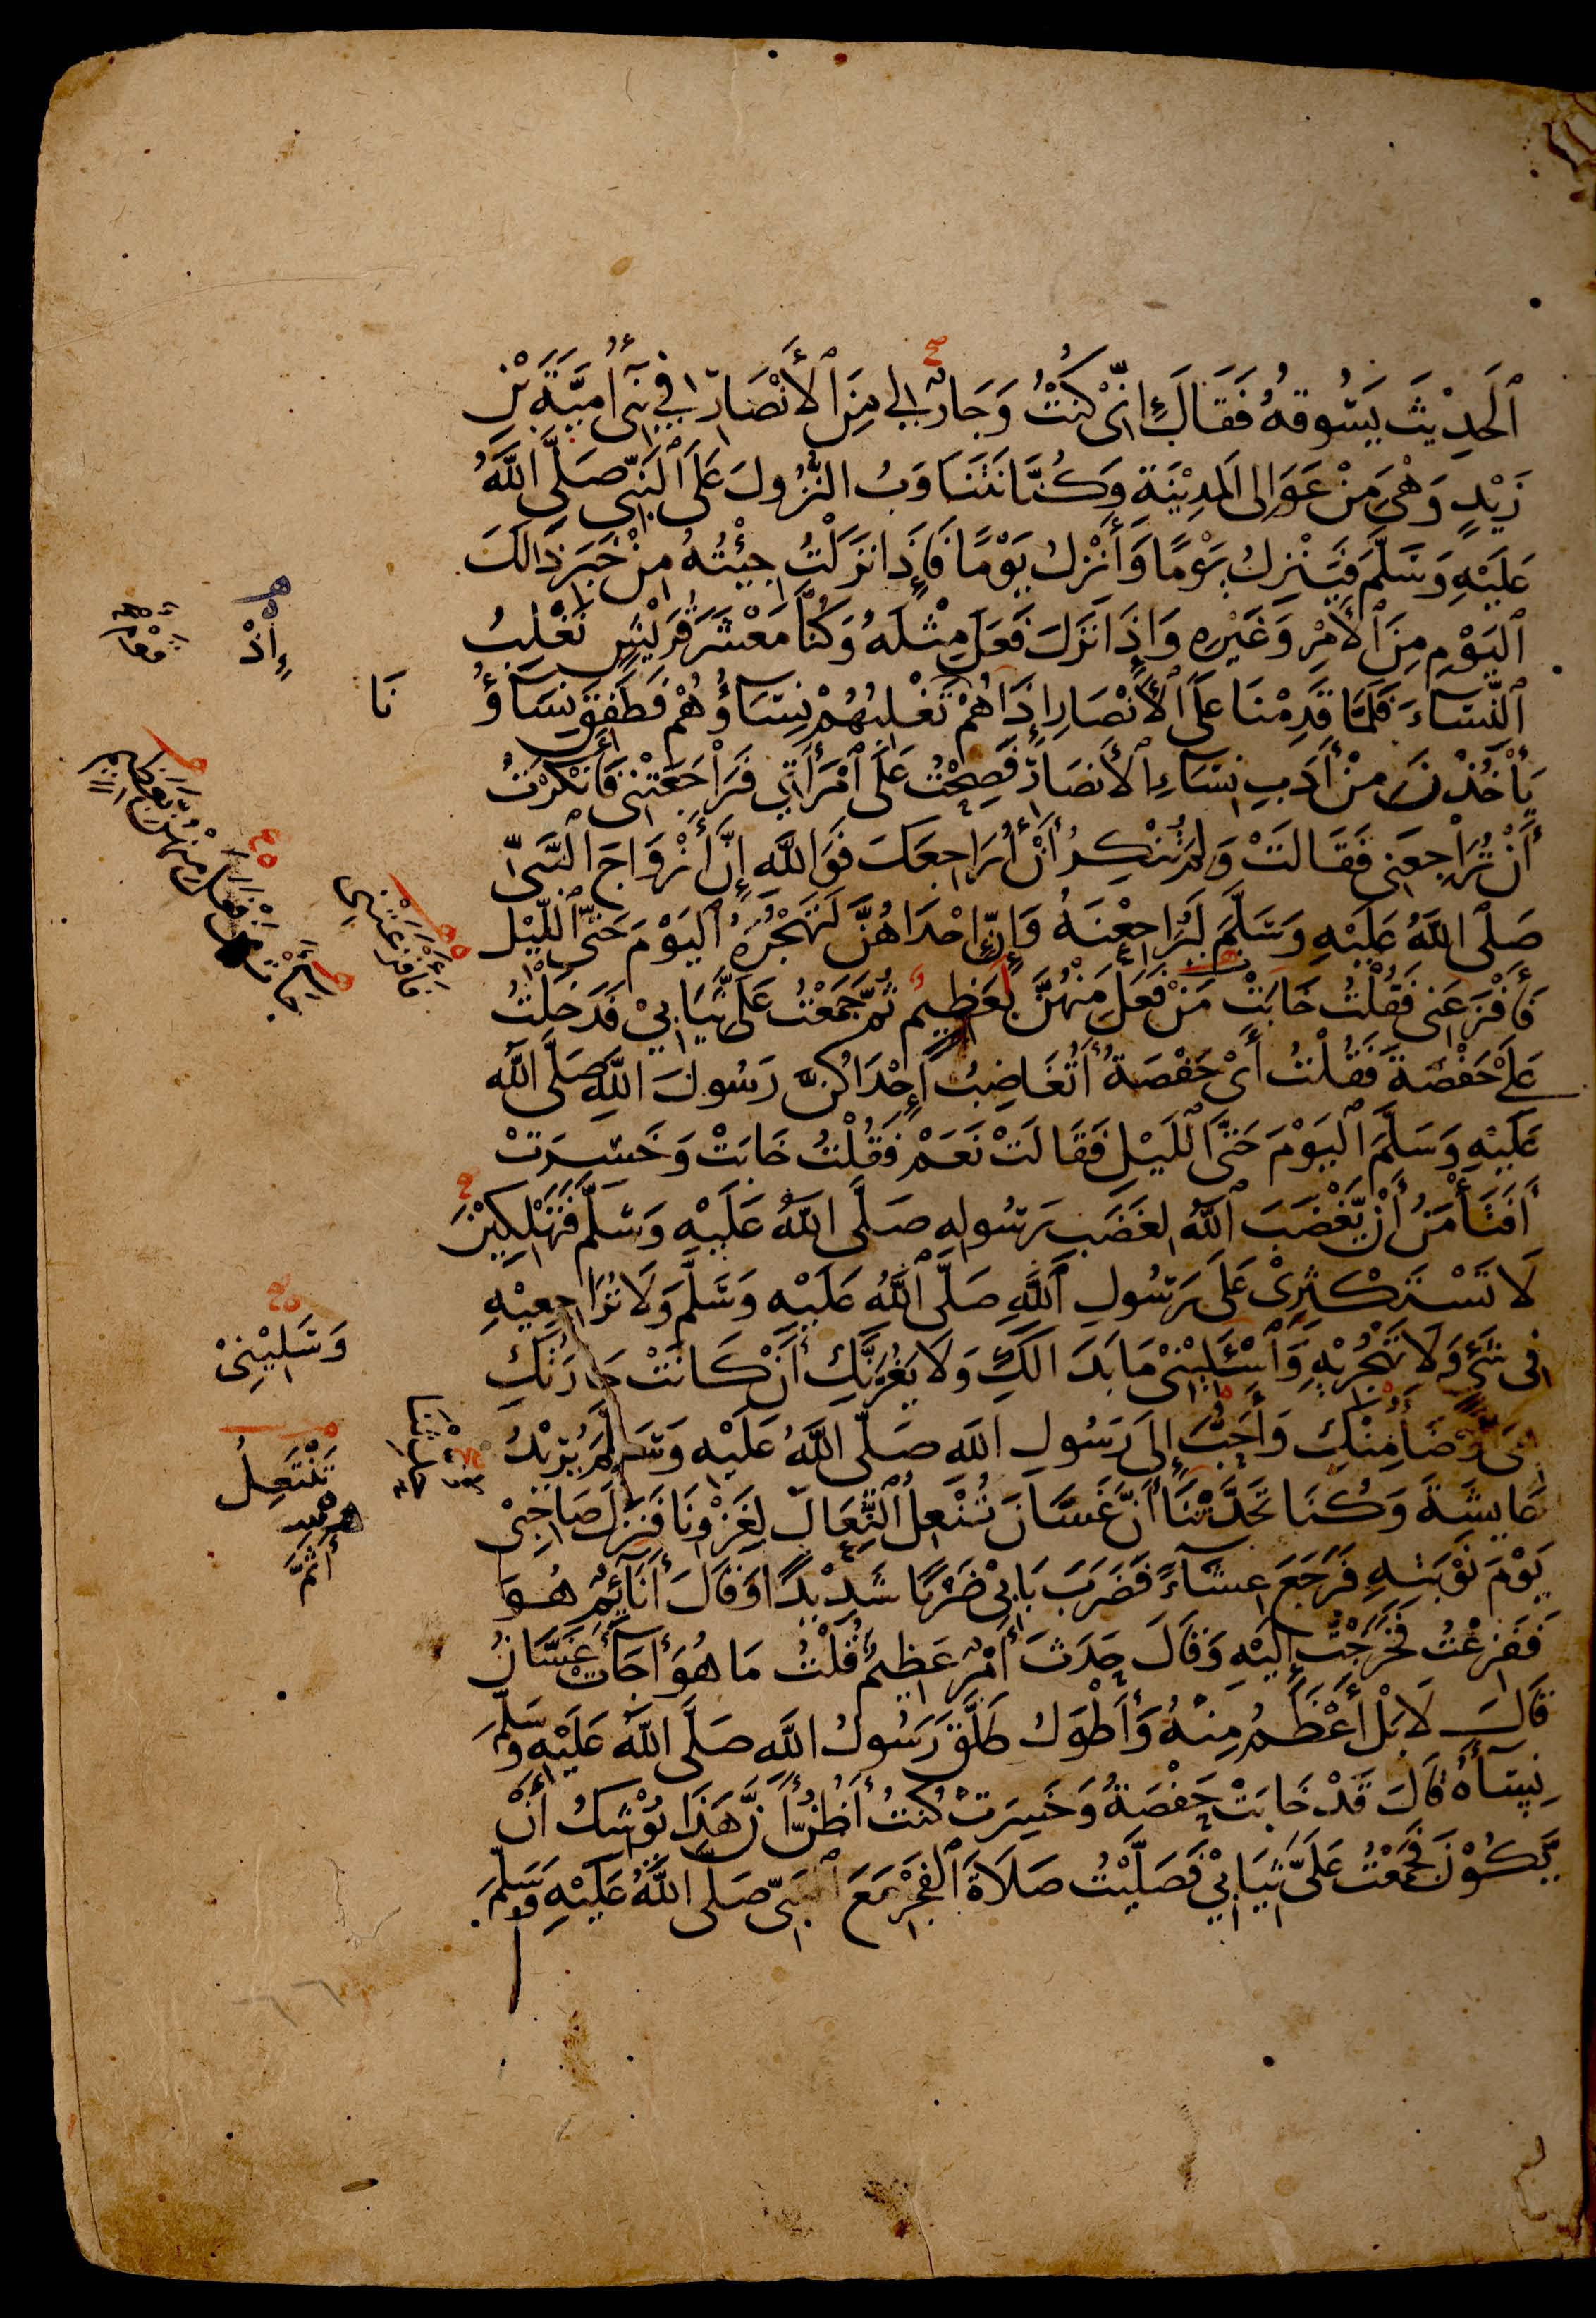 ٱلْحَدِيْثَ يَسُوقُهُ فَقَالَ إِنِّى كُنْتُ وَجَارٌ لِى مِنَ ٱلْأَنْصَارِ فِى بَنِى أُمَيَّةَ بْنِ
زَيْدٍ وَهْىَ مِنْ عَوَالِى الْمَدِيْنَةِ وَكُنَّا نَتَنَاوَبُ النُّزُولَ عَلَى ٱلنَّبِىِّ صَلَّى اللَّهُ
عَلَيْهِ وَسَلَّمَ فَيَنْزِلُ يَوْمًا وَأَنْزِلُ يَوْمًا فَإِذَا نَزَلْتُ جِئْتُهُ مِنْ خَبَرِ ذَالِكَ
ٱلْيَوْمِ مِنَ ٱلْأَمْرِ وَغَيْرِهِ وَإِذَا نَزَلَ فَعَلَ مِثْلَهُ وَكُنَّا مَعْشَرَ قُرَيْشٍ نَغْلِبُ
ٱلنِّسَاءَ فَلَمَّا قَدِمْنَا عَلَى ٱلْأَنْصَارِ إِذَا هُمْ تَغْلِبُهُمْ نِسَاؤُهُمْ فَطَفِقَ نِسَاؤُ
نَا
يَأْخُذْنَ مِنْ أَدَبِ نِسَاءِ ٱلْأَنصَارِ فَصِحْتُ عَلَى ٱمْرَأَتِى فَرَاجَعَتْنِى فَأَنْكَرْتُ
أَنْ تُرَاجِعَنِى فَقَالَتْ وَلِمَ تُنْكِرُ أَنْ أُرَاجِعَكَ فَوَاللَّهِ إِنَّ أَزْوَاجَ ٱلنَّبِىِّ
صَلَّى اللَّهُ عَلَيْهِ وَسَلَّمَ لَيُرَاجِعْنَهُ وَإِنَّ إِحْدَاهُنَّ لَتَهْجُرُهُ ٱلْيَوْمَ حَتَّى ٱللَّيْلِ
فَأَفْزَعَنِى فَقُلْتُ خَابَتْ مَنْ فَعَلَ مِنْهُنَّ بِعَظِيمٍ ثُمَّ جَمَعْتُ عَلَىَّ ثِيَابِىْ فَدَخَلْتُ
عَلَى حَفْصَةَ فَقُلْتُ أَىْ حَفْصَةُ أَتُغَاضِبُ إِحْدَاكُنَّ رَسُولَ اللَّهِ صَلَّى اللَّهُ
عَلَيْهِ وَسَلَّمَ ٱلْيَوْمَ حَتَّى ٱللَّيْلِ فَقَالَتْ نَعَمْ فَقُلْتُ خَابَتْ وَخَسِرَتْ
أَفَتَأْمَنُ أَنْ يَّغْضَبَ ٱللَّهُ لِغَضَبِ رَسُولِهِ صَلَّى اللَّهُ عَلَيْهِ وَسَلَّمَ فَتَهْلِكِيْنَ
لَا تَسْتَكْثِرِىْ عَلَى رَسُولِ ٱللَّهِ صَلَّى ٱللَّهُ عَلَيْهِ وَسَلَّمَ وَلَا تُرَاجِعِيْهِ
فِى شَىْءٍ وَلَا تَهْجُرِيْهِ وَٱسْئَلِيْنِىْ مَا بَدَا لَكِ وَلَا يَغُرَّنَّكِ أَنْ كَانَتْ جَارَتُكِ
هِىَ أَوْضَأَ مِنْكِ وَأَحَبَّ إِلَى رَسُولِ اللَّهِ صَلَّى اللَّهُ عَلَيْهِ وَسَلَّمَ يُرِيْدُ
عَايِشَةَ وَكُنَّا تَحَدَّثْنَا أَنَّ غَسَّانَ تُنْعِلُ ٱلنِّعَالَ لِغَزْوِنَا فَنَزَلَ صَاحِبِىْ
يَوْمَ نَوْبَتِهِ فَرَجَعَ عِشَاءً فَضَرَبَ بَابِىْ ضَرْبًا شَدِيْدًا وَقَالَ أَنَائِمٌ هُوَ
فَفَزِعْتُ فَخَرَجْتُ إِلَيْهِ وَقَالَ حَدَثَ أَمْرٌ عَظِيمٌ قُلْتُ مَا هُوَ أَجَاءَتْ غَسَّانُ
قَالَ لَا بَلْ أَعْظَمُ مِنْهُ وَأَطْوَلُ طَلَّقَ رَسُولُ اللَّهِ صَلَّى اللَّهُ عَلَيْهِ وَسَلَّمَ
نِسَاءَهُ قَالَ قَدْ خَابَتْ حَفْصَةُ وَخَسِرَتْ كُنْتُ أَظُنُّ أَنَّ هَذَا يُوْشِكُ أَنْ
يَّكُوْنَ فَجَمَعْتُ عَلَىَّ ثِيَابِىْ فَصَلَّيْتُ صَلَاةَ ٱلْفَجْرِ مَعَ ٱلنَّبِىِّ صَلَّى اللَّهُ عَلَيْهِ وَسَلَّمَ
إِذْ
فَأَفْزَعَتْنِى
وَسَلِيْنِىْ
تَنْتَعِلُ
أَثَمَّ